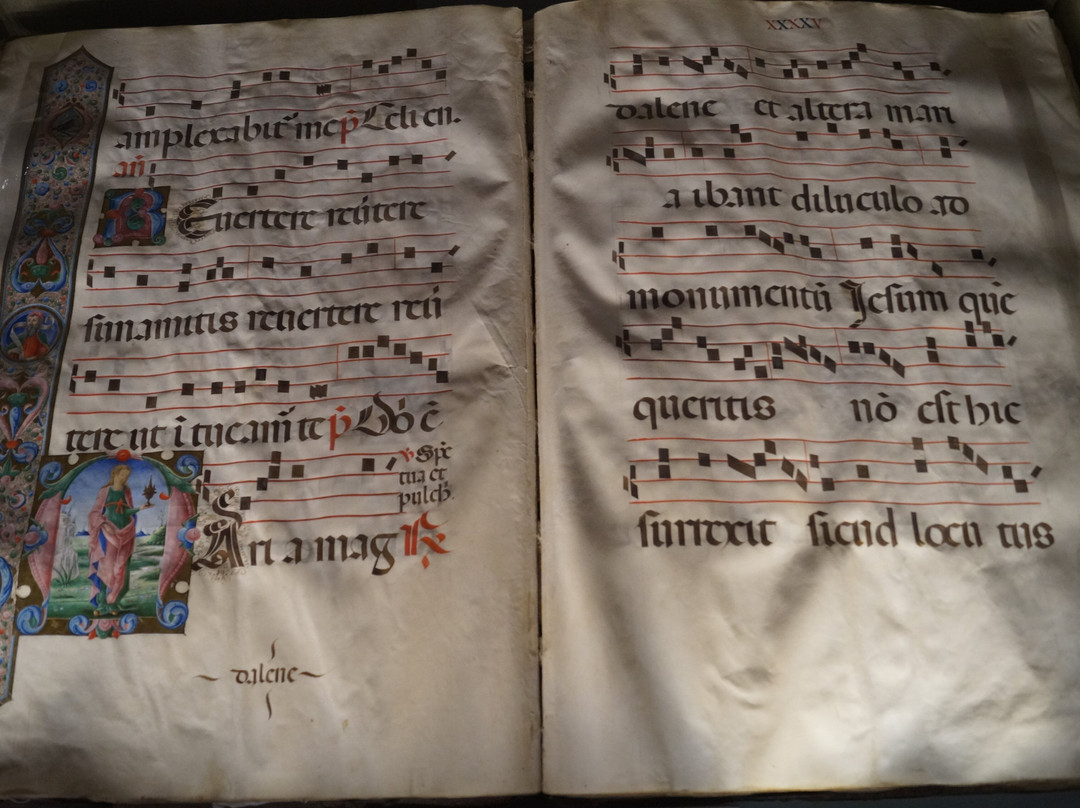 amplexabit͛ me p̄ Celi en.
an̄
REuertere reũtere
sunamitis reuertere reũ
tere ut ītueam̃ te p̄ Dō c̄
v̄ Spē
tua et
pulch̃.
MAri a mag R̃
dalene
XXXXV
dalene et altera mari
a ibant diluculo ad
monumentū Jesum que
queritis nō est hic
surrexit sicud locu tus